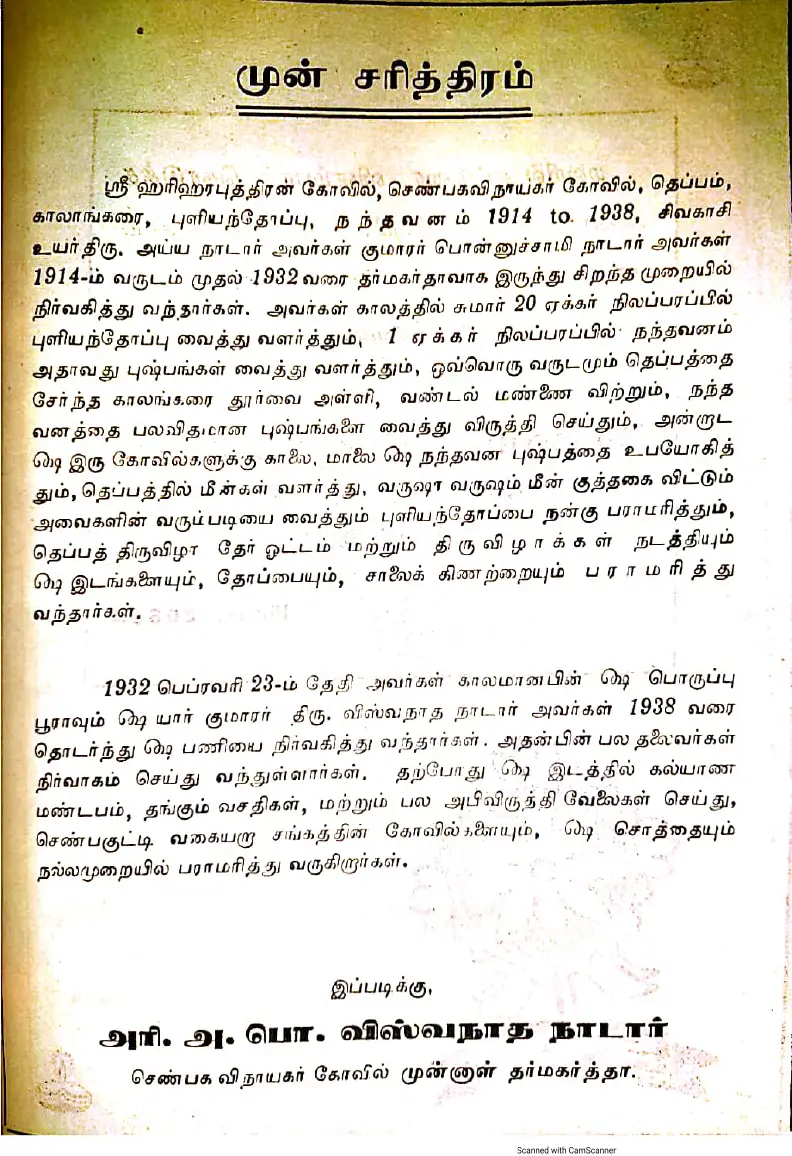 முன் சரித்திரம்
ஸ்ரீ ஹரிஹரபுத்திரன் கோவில், செண்பகவிநாயகர் கோவில், தெப்பம்,
காலாங்கரை, புளியந்தோப்பு, நந்தவனம் 1914 to 1938, சிவகாசி
உயர்திரு. அய்ய நாடார் அவர்கள் குமாரர் பொன்னுச்சாமி நாடார் அவர்கள்
1914-ம் வருடம் முதல் 1932 வரை தர்மகர்தாவாக இருந்து சிறந்த முறையில்
நிர்வகித்து வந்தார்கள். அவர்கள் காலத்தில் சுமார் 20 ஏக்கர் நிலப்பரப்பில்
புளியந்தோப்பு வைத்து வளர்த்தும், 1 ஏக்கர் நிலப்பரப்பில் நந்தவனம்
அதாவது புஷ்பங்கள் வைத்து வளர்த்தும், ஒவ்வொரு வருடமும் தெப்பத்தை
சேர்ந்த காலங்கரை தூர்வை அள்ளி, வண்டல் மண்ணை விற்றும், நந்த
வனத்தை பலவிதமான புஷ்பங்களை வைத்து விருத்தி செய்தும், அன்றாட
௸ இரு கோவில்களுக்கு காலை, மாலை ௸ நந்தவன புஷ்பத்தை உபயோகித்
தும், தெப்பத்தில் மீன்கள் வளர்த்து, வருஷா வருஷம் மீன் குத்தகை விட்டும்
அவைகளின் வரும்படியை வைத்தும் புளியந்தோப்பை நன்கு பராமரித்தும்,
தெப்பத் திருவிழா தேர் ஓட்டம் மற்றும் திருவிழாக்கள் நடத்தியும்
௸ இடங்களையும், தோப்பையும், சாலைக் கிணற்றையும் பராமரித்து
வந்தார்கள்.
1932 பெப்ரவரி 23-ம் தேதி அவர்கள் காலமானபின் ௸ பொருப்பு
பூராவும் ௸ யார் குமாரர் திரு. விஸ்வநாத நாடார் அவர்கள் 1938 வரை
தொடர்ந்து ௸ பணியை நிர்வகித்து வந்தார்கள். அதன்பின் பல தலைவர்கள்
நிர்வாகம் செய்து வந்துள்ளார்கள். தற்போது ௸ இடத்தில் கல்யாண
மண்டபம், தங்கும் வசதிகள், மற்றும் பல அபிவிருத்தி வேலைகள் செய்து,
செண்பகுட்டி வகையறா சங்கத்தின் கோவில்களையும், ௸ சொத்தையும்
நல்லமுறையில் பராமரித்து வருகிறார்கள்.
இப்படிக்கு,
அரி. அ. பொ. விஸ்வநாத நாடார்
செண்பக விநாயகர் கோவில் முன்னாள் தர்மகர்த்தா.
Scanned with CamScanner